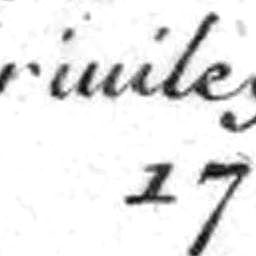 riuileg
17